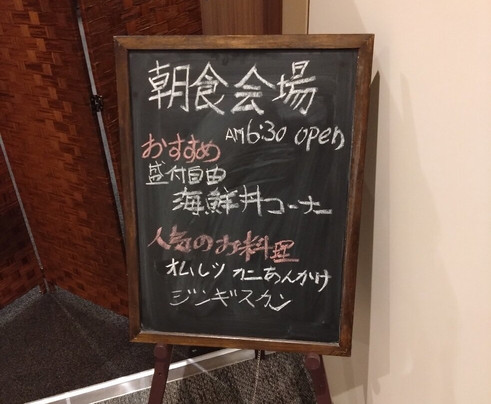 朝食会場
AM6:30 open
おすすめ
盛付自由
海鮮丼コーナー
人気のお料理
オムレツ カニあんかけ
ジンギスカン